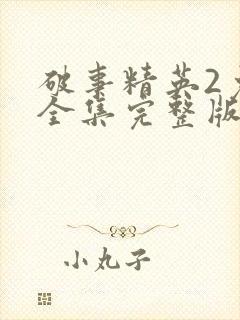 破事精英2
全集完整版
小丸子